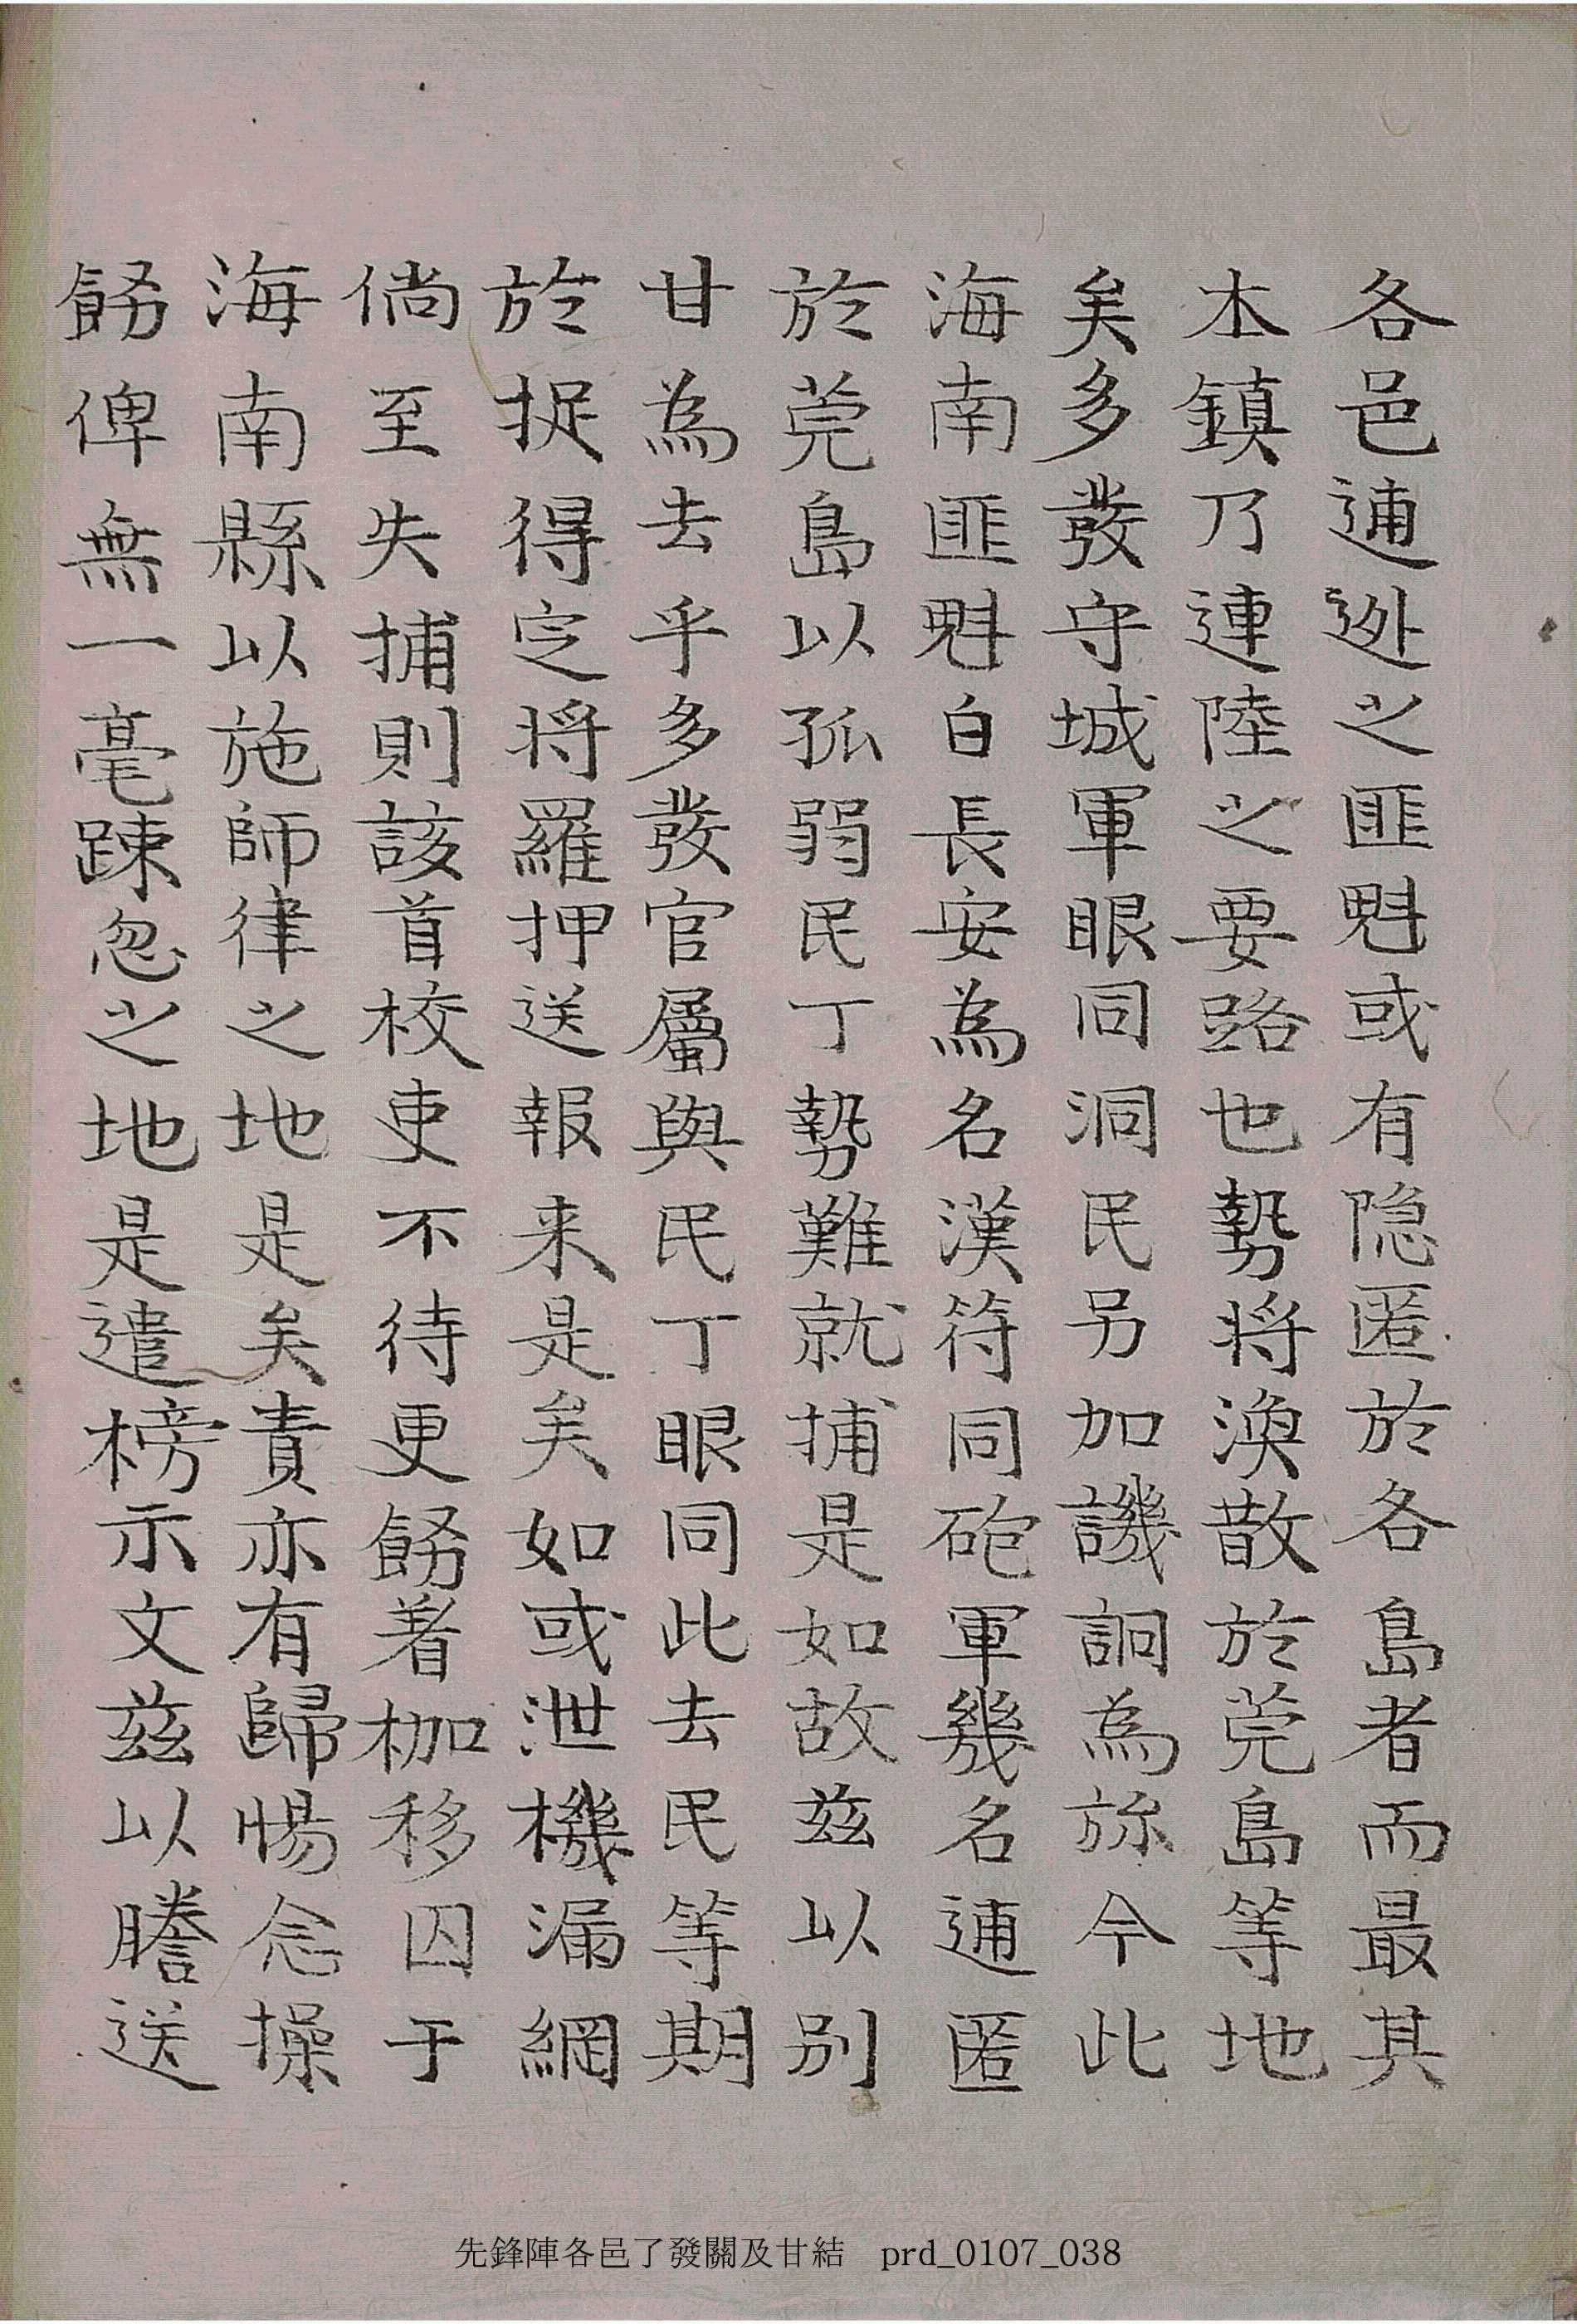 各邑逋逊之匪魁或有隐匿於各島者而最其
本鎮乃連陸之要路也勢将渙散於莞島等地
矣多發守城軍眼同洞民另加譏詗為旀今此
海南匪魁白長安為名漢符同砲軍幾名逋匿
於莞島以孤弱民丁勢難就捕是如故玆以別
甘為去乎多發官屬與民丁眼同此去民等期
於捉得定将羅押送報来是矣如或泄機漏網
倘至失捕則該首校吏不待更飭着枷移囚于
海南縣以施師律之地是矣責亦有歸惕念操
飭俾無一毫踈忽之地是遣榜示文玆以謄送
先鋒陣各邑了發關及甘結 prd_0107_038